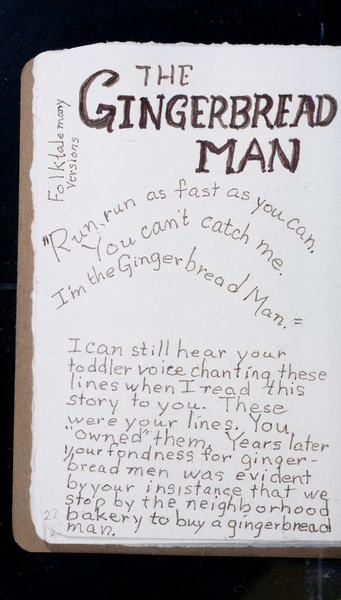 THE
GINGERBREAD
MAN
Folktale many
versions
"Run, run as fast as you can.
You can't catch me.
I'm the Gingerbread Man.=
I can still hear your
toddler voice chanting these
lines when I read this
story to you. These
were your lines. You
"owned" them. Years later
your fondness for ginger-
bread men was evident
by your insistance that we
stop by the neighborhood
bakery to buy a gingerbread
man.
22